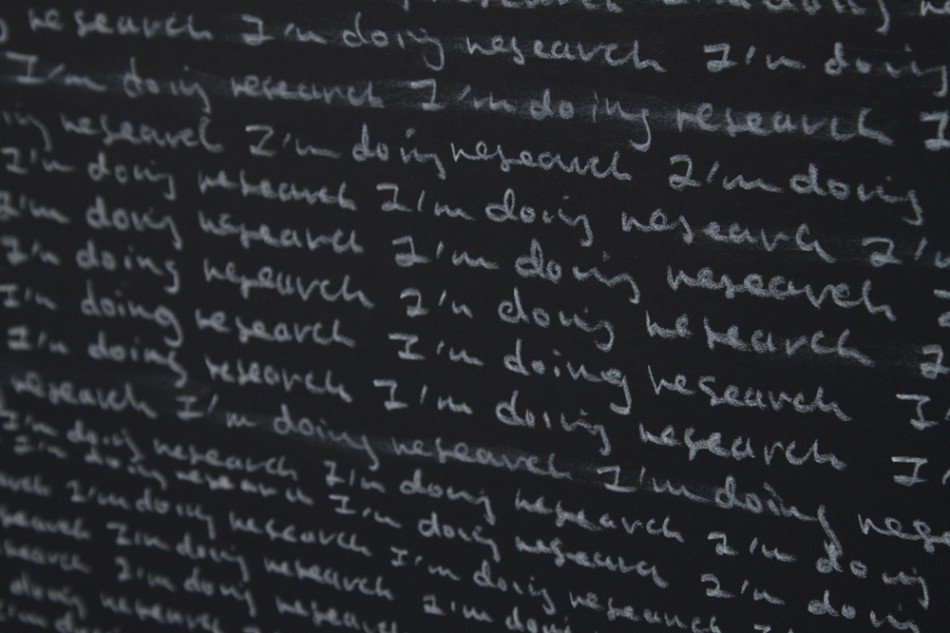 research I'm doing research I'm doing
I'm doing research I'm doing research I
research I'm doing research I'm doing
I'm doing research I'm doing research I'm
I'm doing research I'm doing research
I'm doing research I'm doing research I
I'm doing research I'm doing research I
I'm doing research I'm doing research I
research I'm doing research I'm doing
I'm doing research I'm doing research I'm doing
I'm doing research I'm doing research I'm doing
I'm doing research I'm doing research
I'm doing research I'm doing
I'm doing research
doing research research